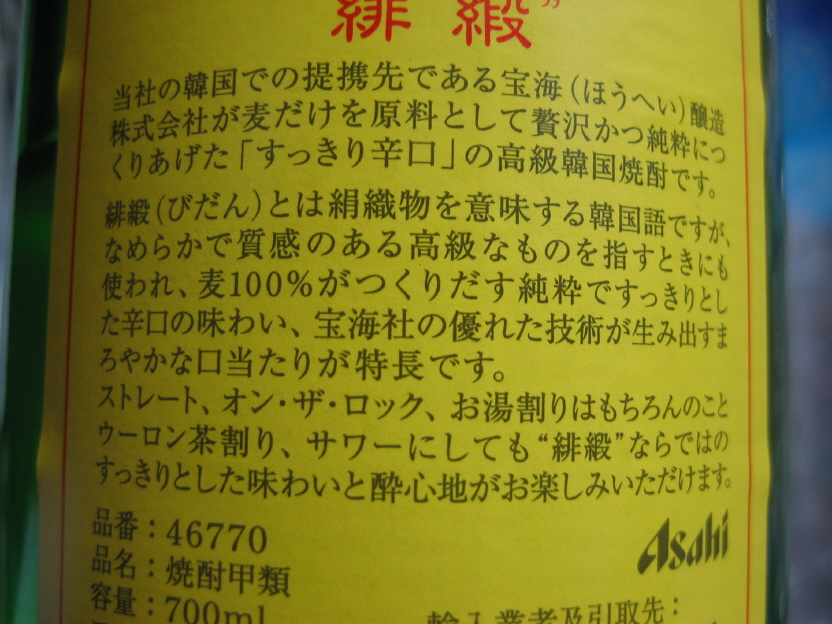 緋緞
当社の韓国での提携先である宝海(ほうへい)醸造
株式会社が麦だけを原料として贅沢かつ純粋につ
くりあげた「すっきり辛口」の高級韓国焼酎です。
緋緞(びだん)とは絹織物を意味する韓国語ですが、
なめらかで質感のある高級なものを指すときにも
使われ、麦100%がつくりだす純粋ですっきりとし
た辛口の味わい、宝海社の優れた技術が生み出すま
ろやかな口当たりが特長です。
ストレート、オン・ザ・ロック、お湯割りはもちろんのこと
ウーロン茶割り、サワーにしても“緋緞”ならではの
すっきりとした味わいと酔心地がお楽しみいただけます。
品番：46770
Asahi
品名：焼酎甲類
容量：700ml
輸入業者及引取先：